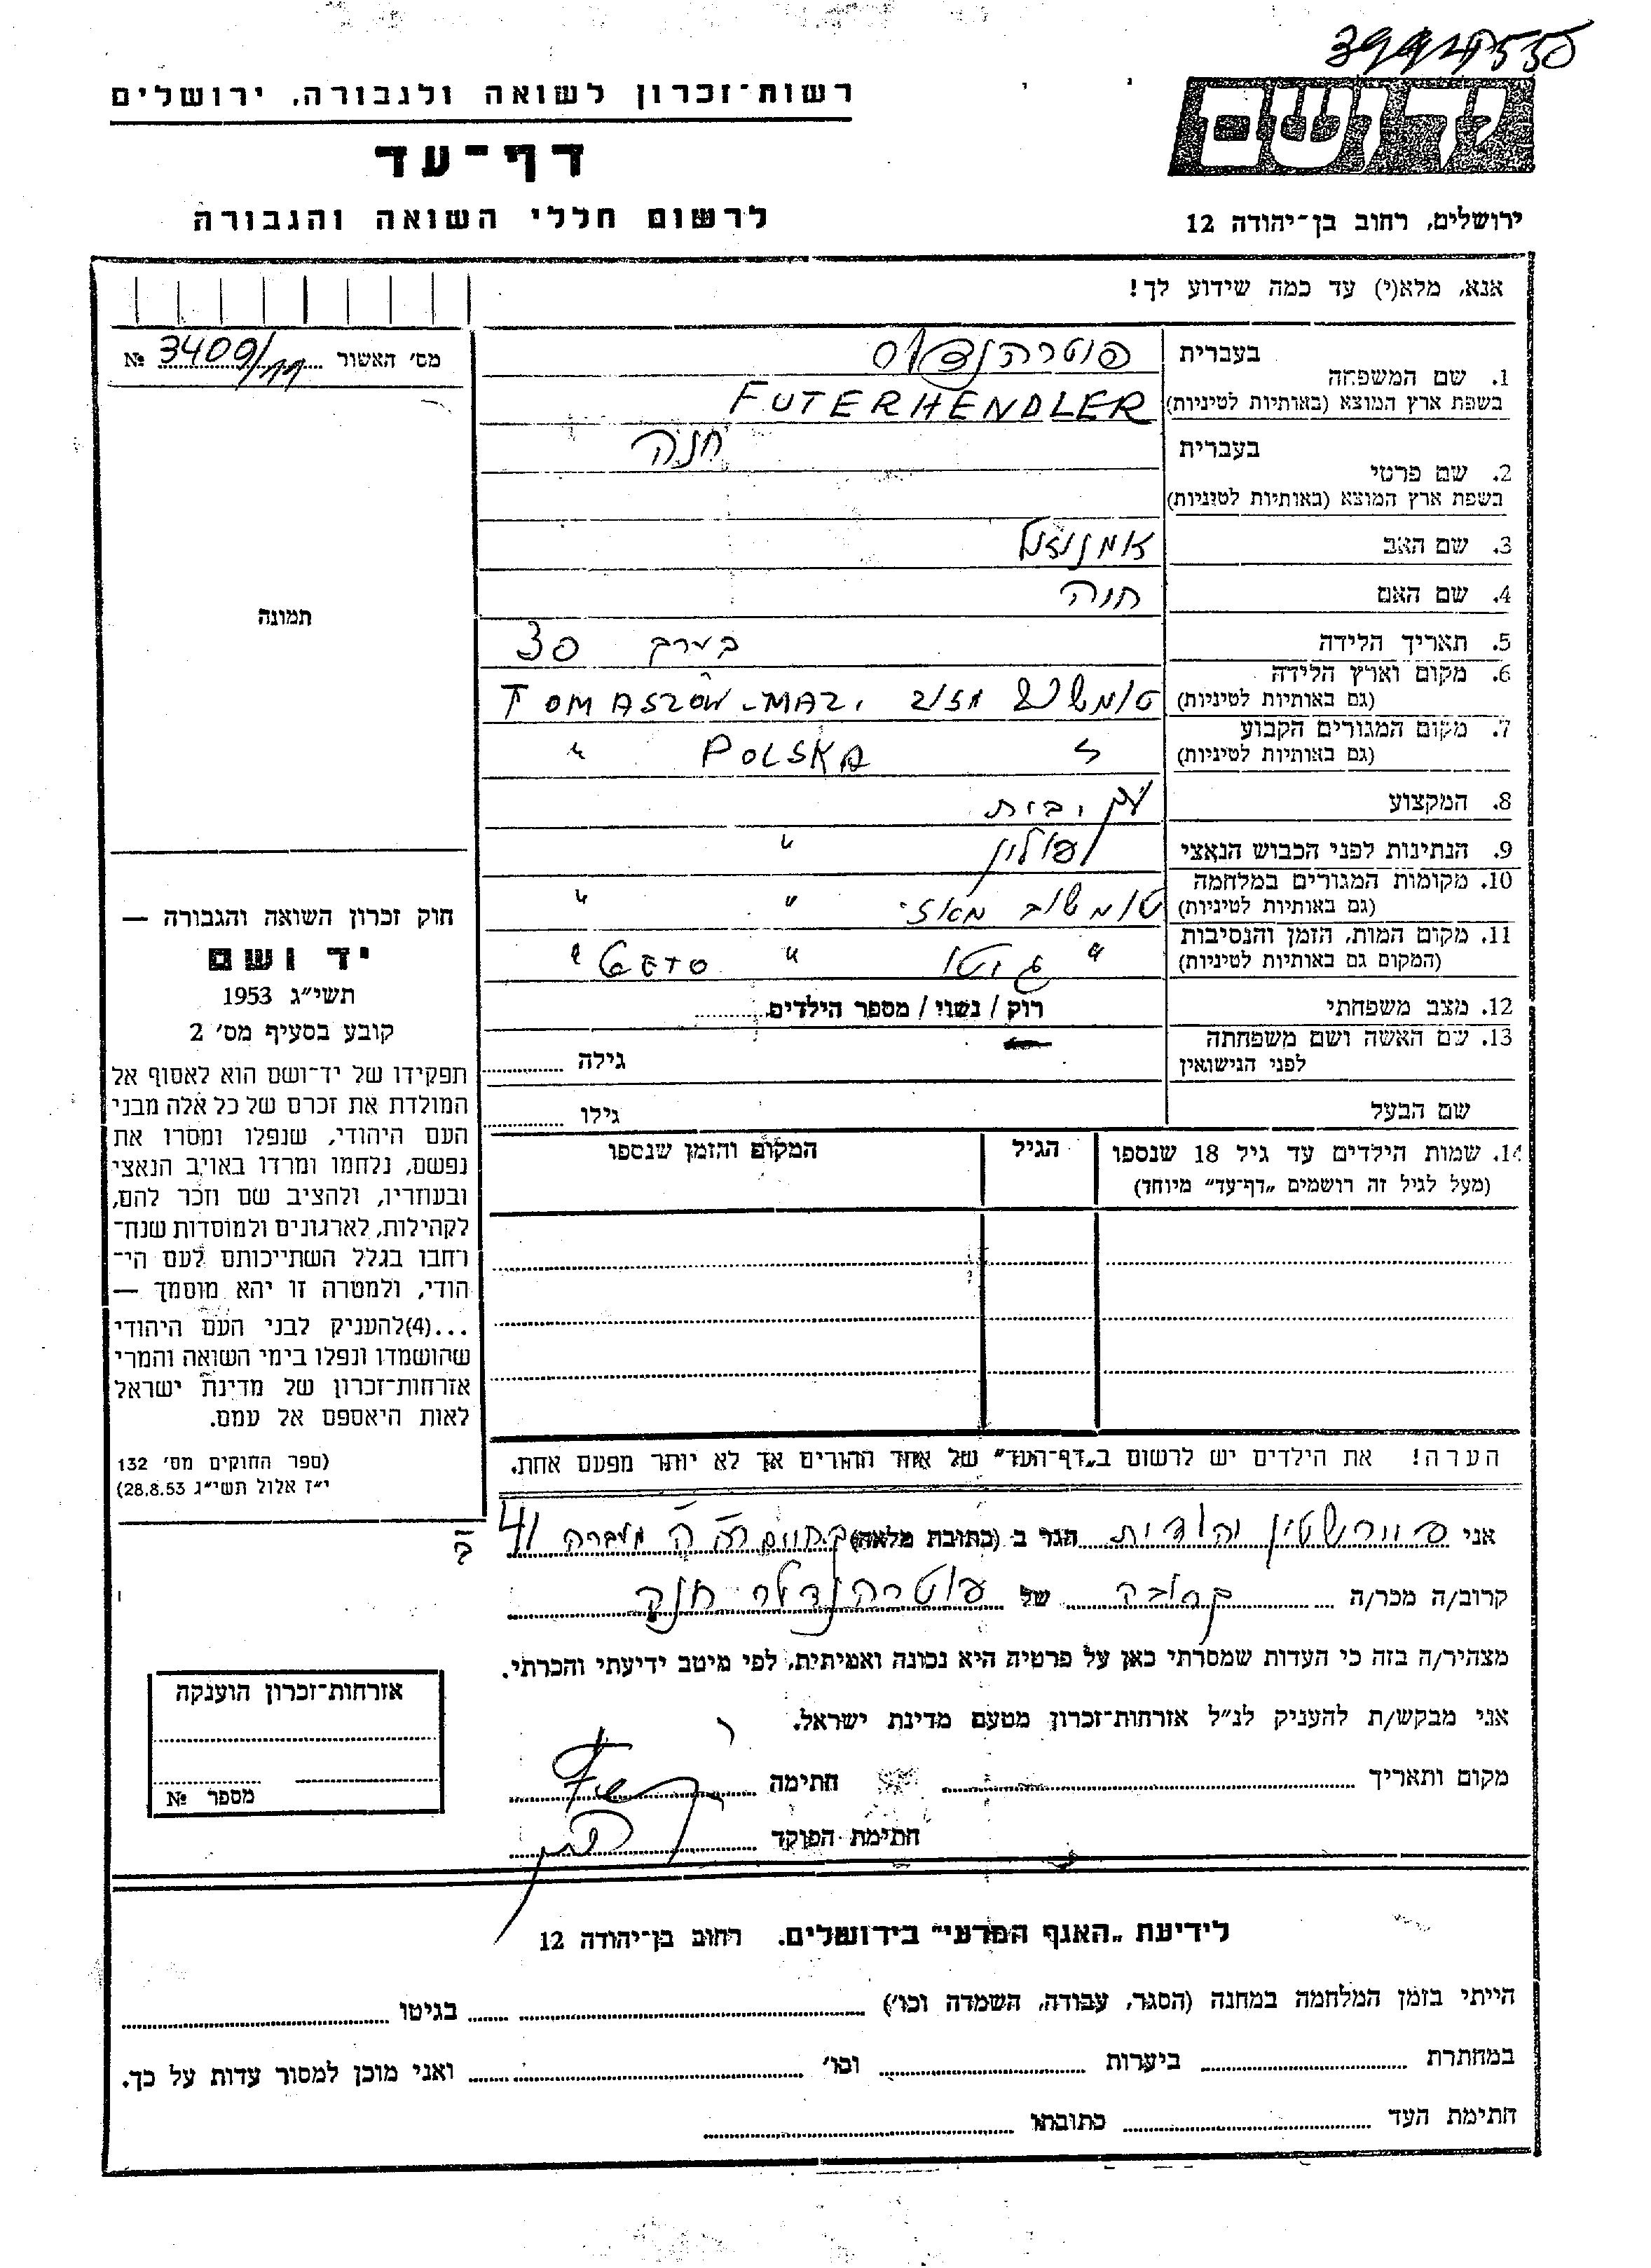 רשות־זכרון לשואה ולגבורה, ירושלים
דף־עד
לרשום חללי השואה והגבורה
ירושלים, רחוב בן־יהודה 12
אנא, מלא(י) עד כמה שידוע לך!
מס׳ האשור № 3409/11
1. שם המשפחה
בעברית
בשפת ארץ המוצא (באותיות לטיניות) FUTERHENDLER
2. שם פרטי
בעברית חנה
בשפת ארץ המוצא (באותיות לטיניות)
3. שם האב
4. שם האם חנה
5. תאריך הלידה בערך 30
6. מקום וארץ הלידה
(גם באותיות לטיניות) TOMASZÓW-MAZ.
7. מקום המגורים הקבוע
(גם באותיות לטיניות) POLSKA "
8. המקצוע
9. הנתינות לפני הכבוש הנאצי פולין "
10. מקומות המגורים במלחמה
(גם באותיות לטיניות) טומשוב מאז. " "
11. מקום המות, הזמן והנסיבות
(המקום גם באותיות לטיניות) " גיטו " GETO "
12. מצב משפחתי רוק / נשוי / מספר הילדים
13. שם האשה ושם משפחתה
לפני הנישואין גילה
שם הבעל גילו
14. שמות הילדים עד גיל 18 שנספו
(מעל לגיל זה רושמים „דף־עד״ מיוחד)
הגיל
המקום והזמן שנספו
הערה! את הילדים יש לרשום ב„דף־העד״ של אחד ההורים אך לא יותר מפעם אחת.
תמונה
חוק זכרון השואה והגבורה —
יד ושם
תשי״ג 1953
קובע בסעיף מס׳ 2
תפקידו של יד־ושם הוא לאסוף אל
המולדת את זכרם של כל אלה מבני
העם היהודי, שנפלו ומסרו את
נפשם, נלחמו ומרדו באויב הנאצי
ובעוזריו, ולהציב שם וזכר להם,
לקהילות, לארגונים ולמוסדות שנח־
רחבו בגלל השתייכותם לעם הי־
הודי, ולמטרה זו יהא מוסמך —
...(4)להעניק לבני העם היהודי
שהושמדו ונפלו בימי השואה והמרי
אזרחות־זכרון של מדינת ישראל
לאות היאספם אל עמם.
(ספר החוקים מס׳ 132
י״ז אלול תשי״ג 28.8.53)
אני יהודית הגר ב (כתובת מלאה) 41
קרוב/ה מכר/ה קרובה של פוטרהנדלר חנה
מצהיר/ה בזה כי העדות שמסרתי כאן על פרטיה היא נכונה ואמיתית, לפי מיטב ידיעתי והכרתי.
אני מבקש/ת להעניק לנ״ל אזרחות־זכרון מטעם מדינת ישראל.
מקום ותאריך חתימה
חתימת הפוקד
אזרחות־זכרון הוענקה
מספר №
לידיעת „האגף המדעי״ בירושלים. רחוב בן־יהודה 12
הייתי בזמן המלחמה במחנה (הסגר, עבודה, השמדה וכו׳) בגיטו
במחתרת ביערות וכו׳ ואני מוכן למסור עדות על כך.
חתימת העד כתובתו